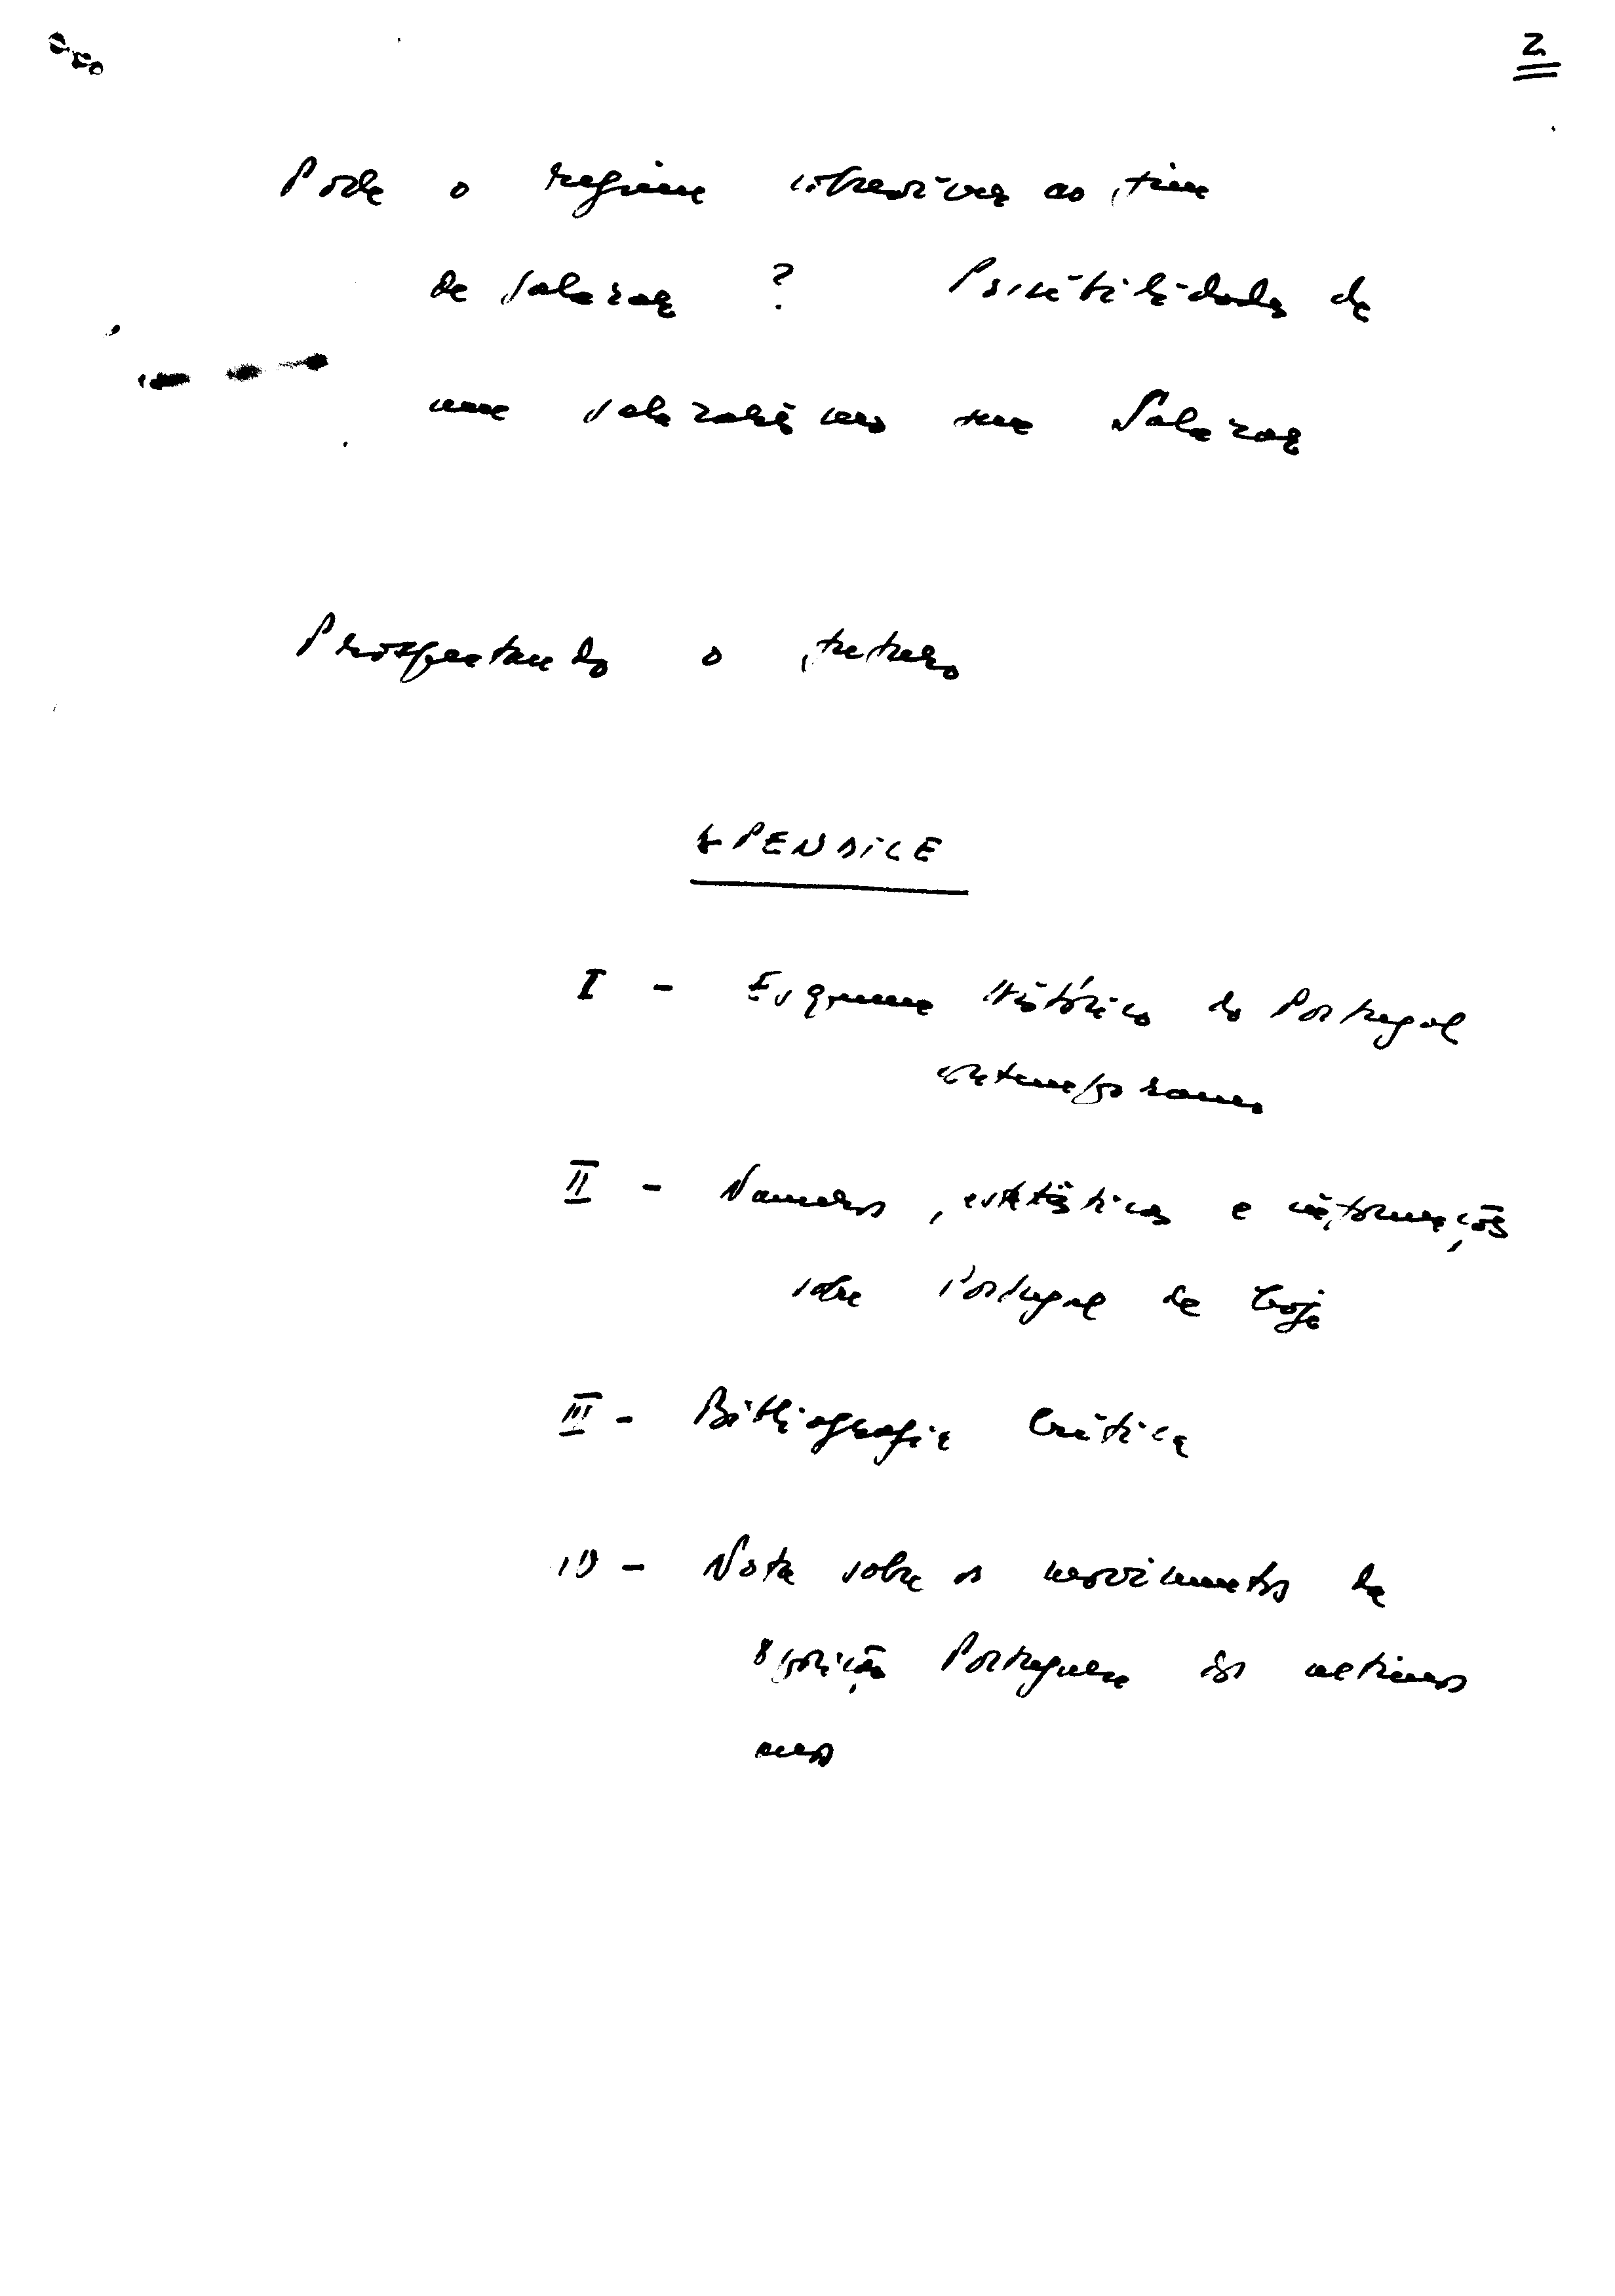 2
Pode o regime sobreviver ao fim
de Salazar ? Possibilidade de
um salazarismo sem Salazar
Prospectando o futuro
APENDICE
I - Esquema Histórico do Portugal
contemporaneo
II - Numeros, estatísticas e informações
sobre Portugal de hoje
III - Bibliografia Crítica
IV - Nota sobre os movimentos da
oposição Portuguesa dos ultimos
anos